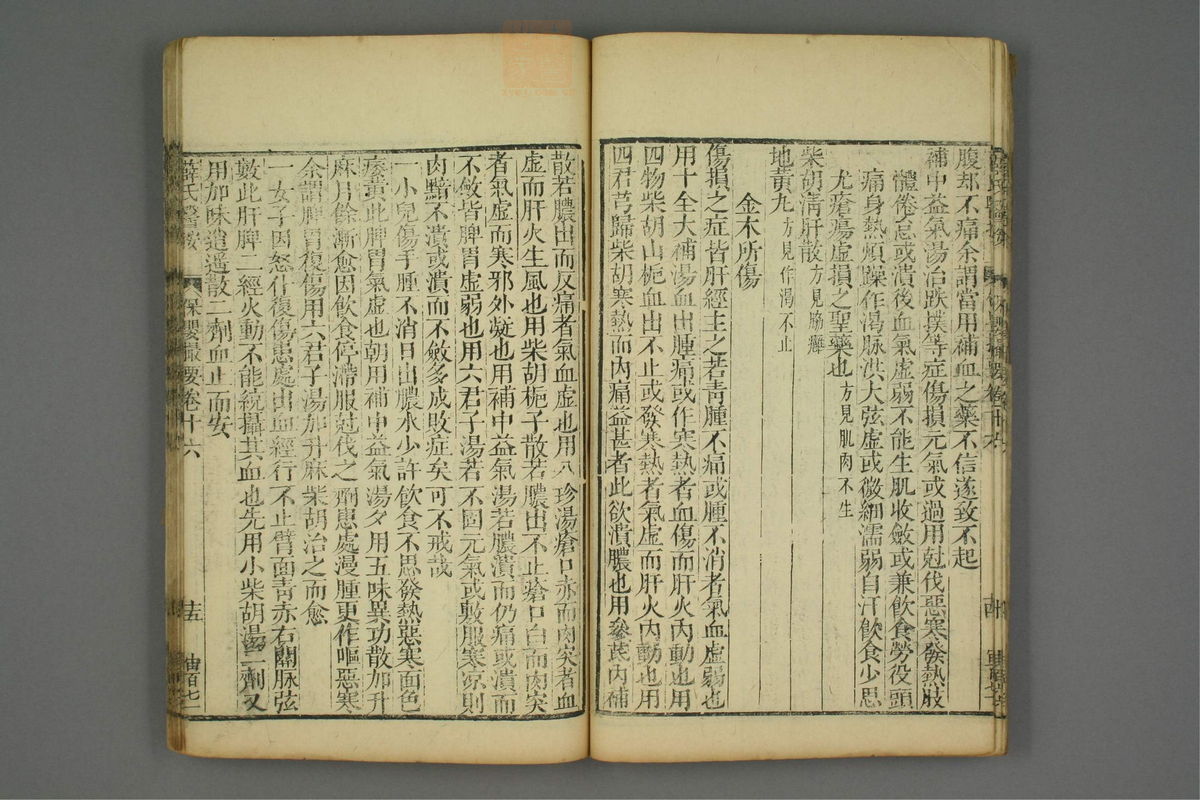 腹却不痛余謂當用補血之藥不信遂致不起
補中益氣湯治跌撲等症傷損元氣或過用尅伐惡寒發熱肢
體倦怠或潰後血氣虛弱不能生肌收斂或兼飲食勞役頭
痛身熱煩躁作渴脉洪大弦虛或微細濡弱自汗飲食少思
尤瘡瘍虛損之聖藥也方見肌肉不生
柴胡清肝散方見胁癰
地黃丸方見作渴不止
金木所傷
傷損之症皆肝經主之若青腫不痛或腫不消者氣血虛弱也
用十全大補湯血出腫痛或作寒熱者血傷而肝火內動也用
四物柴胡山梔血出不止或發寒熱者氣虛而肝火內動也用
四君芎歸柴胡寒熱而內痛益甚者此欲潰膿也用參茋內補
散若膿出而反痛者氣血虛也用八珍湯瘡口赤而肉突者血
虛而肝火生風也用柴胡梔子散若膿出不止瘡口白而肉突
者氣虛而寒邪外凝也用補中益氣湯若膿潰而仍痛或潰而
不斂皆脾胃虛弱也用六君子湯若不固元氣或數服寒凉則
肉黯不潰或潰而不斂多成敗症矣可不戒哉
一小兒傷手腫不消日出膿水少許飲食不思發熱惡寒面色
痿黃此脾胃氣虛也朝用補中益氣湯夕用五味異功散加升
麻月餘漸愈因飲食停滯服尅伐之劑患處漫腫更作嘔惡寒
余謂脾胃復傷用六君子湯加升麻柴胡治之而愈
一女子因怒仆復傷患處出血經行不止臂面青赤右關脉弦
數此肝脾二經火動不能統攝其血也先用小柴胡湯二劑又
用加味逍遥散二劑血止而安
薛氏醫按 保嬰撮要卷十六 十五